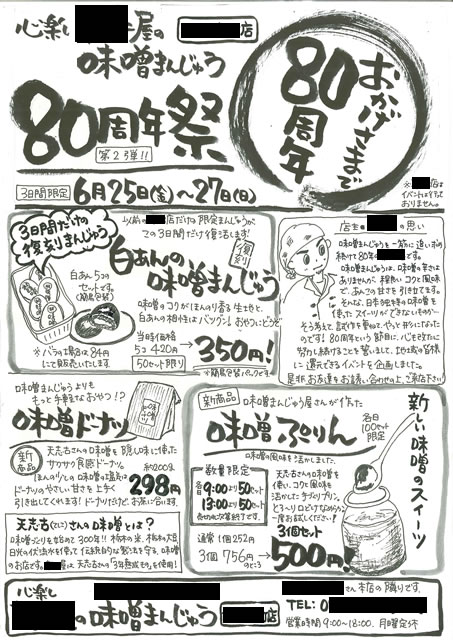 心楽し
屋の
店
味噌まんじゅう
80周年祭
第2弾!!
おかげさまで
80周年
3日間限定
6月25日(金)~27日(日)
※
店は
イベントは行って
おりません。
3日間だけの
復刻まんじゅう
白あん5コの
セットです。
(簡易包装)
※バラの場合は84円
にて販売いたします。
以前の
店だけの限定まんじゅうが
この3日間だけ復活します!
復刻
白あんの
味噌まんじゅう
味噌のコクがほんのり香る生地と、
白あんの相性はバツグン♪おやつにどうぞ
当時価格
5コ420円
50セット限り
350円!
※簡易包装パックです
店主
の思い
味噌まんじゅうを一筋に追い求め
続けて80年の
です!
味噌まんじゅうは、味噌の辛さは
ありませんが、程良いコクと風味
で、あんこの甘さを引き立てます。
そんな、日本独自の味噌を
使ったスイーツができないものか…
そう考えて、試作を重ね、やっと形になった
のです!80周年という節目に、心も新たに
努力し続けることを誓いまして、地域の皆様
に還元できるイベントを企画しました。
是非お友達をお誘い合わせの上、ご来店下さい!
味噌まんじゅうよりも
もっと手軽なおやつ!?
味噌ドーナツ
新商品
天志古さんの味噌を隠し味に使った
サクサク食感ドーナツ。
ほんのりとの味噌の塩気が
ドーナツのやさしい甘さを上手く
引き出してくれます!ドーナツだけど、お茶に合います。
約200g
298円
天志古さんの味噌とは?
味噌づくりを始めて300年!!栃木の米、栃木の大豆
日光の伏流水を使って伝統的な製法を守る、味噌
のお店です。
屋は、天志古の「3年熟成もの」を使用!
新商品
味噌まんじゅう屋さんが作った
味噌ぷりん
味噌の風味を活かしました。
各日
100セット
限定
新しい味噌のスイーツ
数量限定
各日
9:00より50セット
13:00より50セット
売り切れ次第終了です。
天志古さんの味噌を
使い、コクと風味を
活かした手づくりプリン。
とろ~り口どけなめらか。
一度お試しください!
通常1個252円
3個756円
のところ
3個セット
500円!
心楽し
の味噌まんじゅう
店
さん本店の隣りです。
TEL:0
営業時間9:00~18:00. 月曜定休